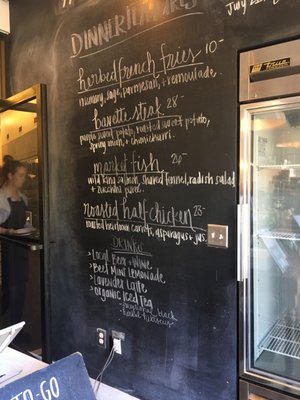 July 22
DINNER
herbed french fries 10-
rosemary, sage, parmesan, + remoulade.
bavette steak 28-
purple sweet potato, roasted sweet potato,
spring onion, + chimichurri.
market fish
wild king salmon, shaved fennel, radish salad
+ zucchini puree.
roasted half chicken
roasted heirloom carrots, asparagus + jus.
DRINKS
> Local Beer + Wine
> Beet Mint Lemonade
> Lavender Latte
> Organic Iced Tea
- seasonal black
- hibiscus
true
TO-GO